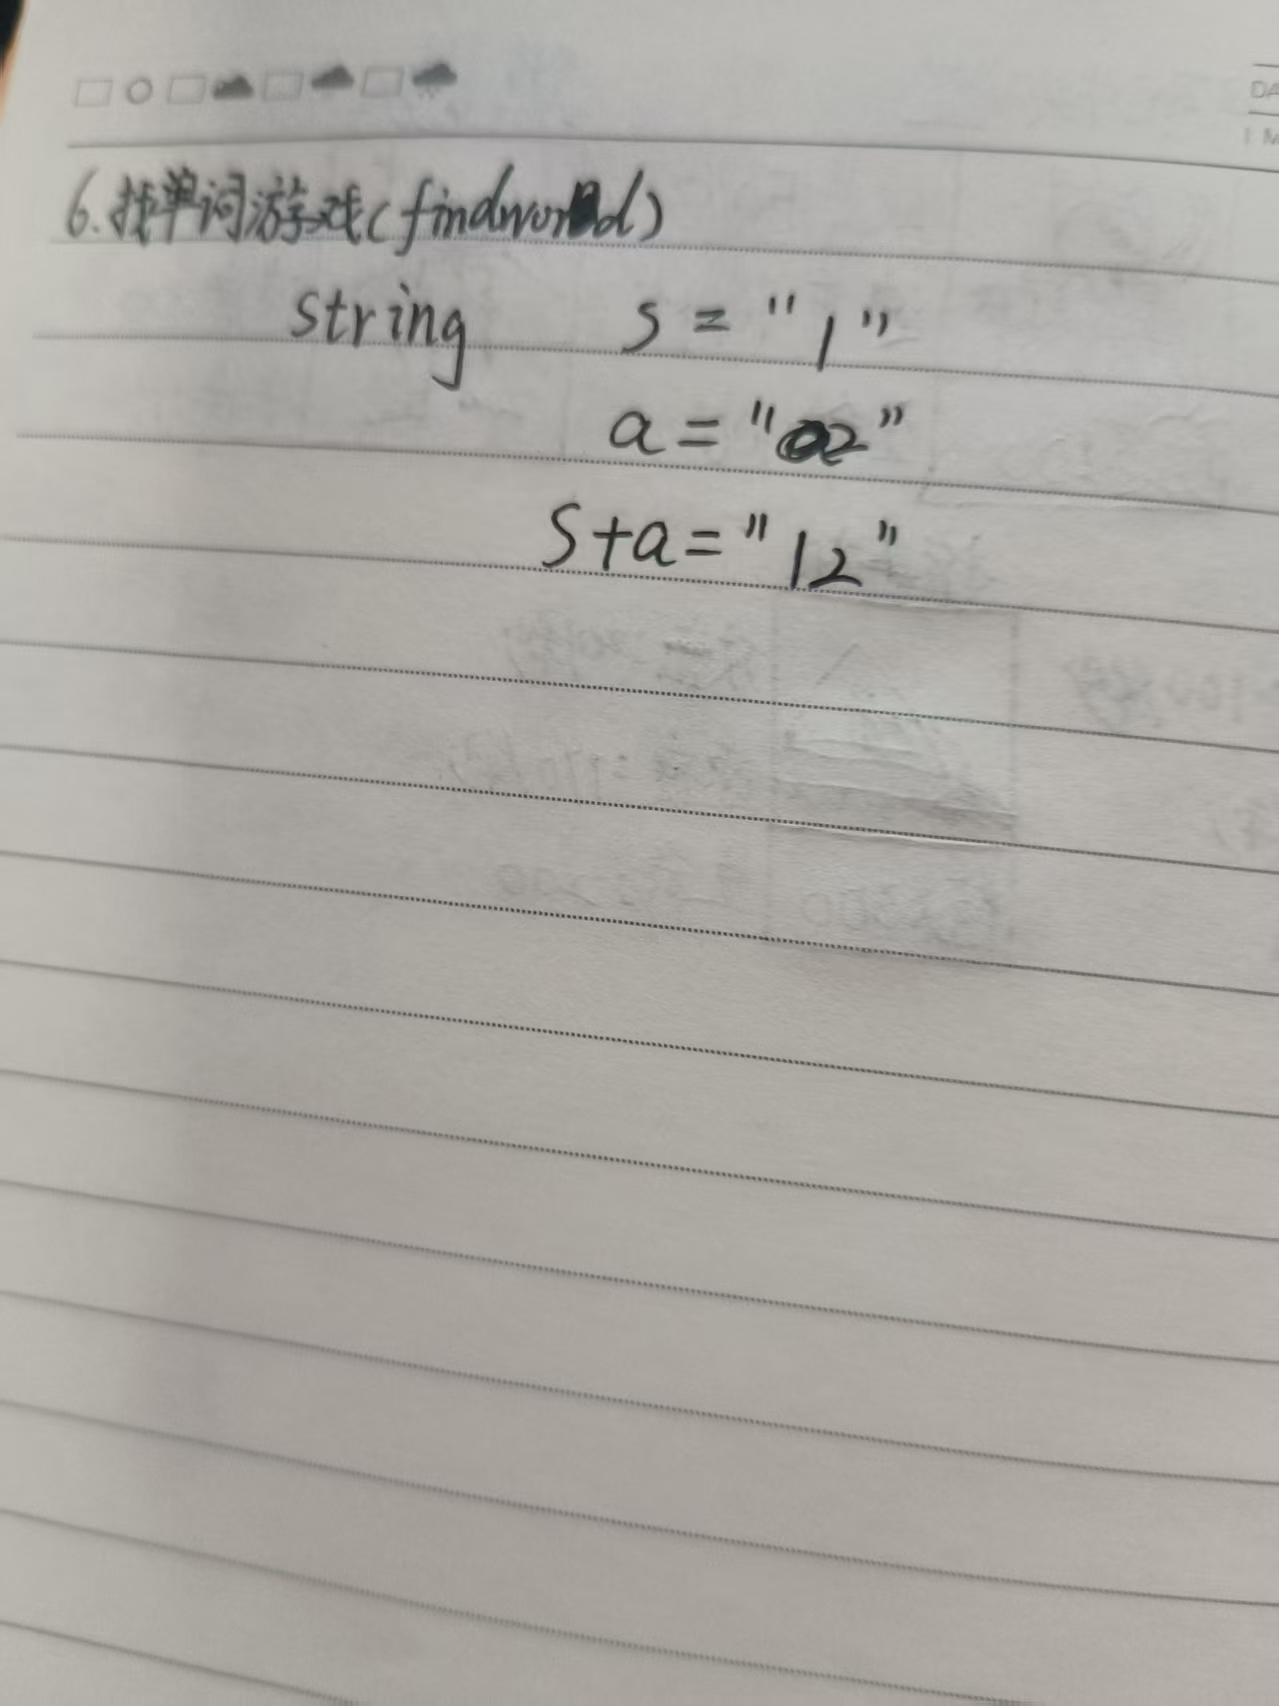 DA
6.找单词游戏(findword)
string s = "1"
a = "2"
S+a = "12"